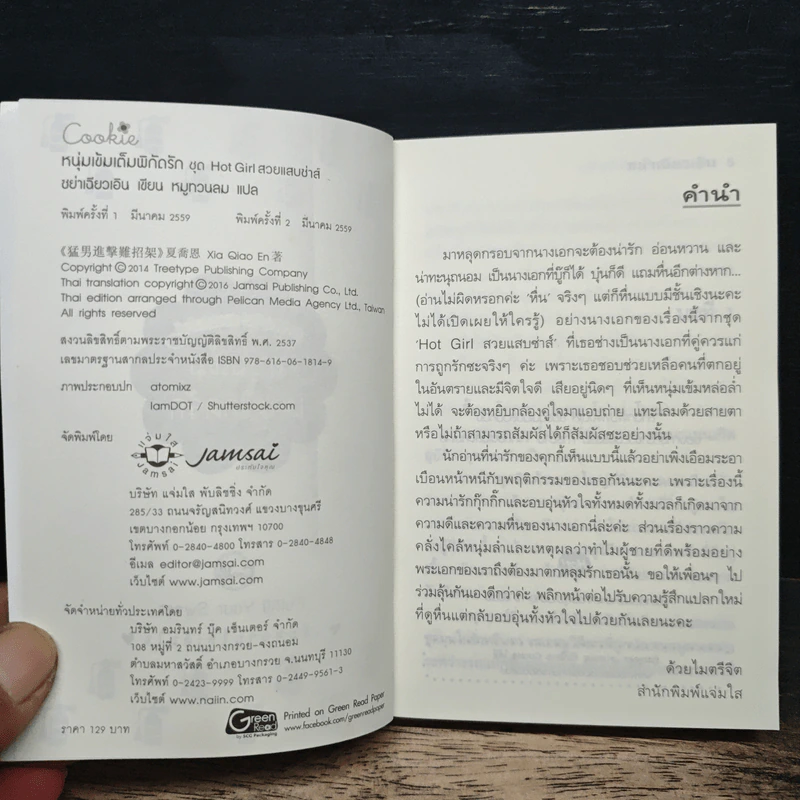 Cookie
หนุ่มเข้มเต็มพิกัดรัก ชุด Hot Girl สวยแสบซ่าส์
ซย่าเฉียวเอิน เขียน หมูทวนลม แปล
พิมพ์ครั้งที่ 1 มีนาคม 2559 พิมพ์ครั้งที่ 2 มีนาคม 2559
《猛男進擊難招架》夏喬恩 Xia Qiao En 著
Copyright © 2014 Treetype Publishing Company
Thai translation copyright © 2016 Jamsai Publishing Co., Ltd.
Thai edition arranged through Pelican Media Agency Ltd., Taiwan
All rights reserved
สงวนลิขสิทธิ์ตามพระราชบัญญัติลิขสิทธิ์ พ.ศ. 2537
เลขมาตรฐานสากลประจำหนังสือ ISBN 978-616-06-1814-9
ภาพประกอบปก atomixz
IamDOT / Shutterstock.com
จัดพิมพ์โดย
แจ่มใส
Jamsai
Jamsai
บริษัท แจ่มใส พับลิชชิ่ง จำกัด
285/33 ถนนจรัญสนิทวงศ์ แขวงบางขุนศรี
เขตบางกอกน้อย กรุงเทพฯ 10700
โทรศัพท์ 0-2840-4800 โทรสาร 0-2840-4848
อีเมล editor@jamsai.com
เว็บไซต์ www.jamsai.com
จัดจำหน่ายทั่วประเทศโดย
บริษัท อมรินทร์ บุ๊ค เซ็นเตอร์ จำกัด
108 หมู่ที่ 2 ถนนบางกรวย-จงถนอม
ตำบลมหาสวัสดิ์ อำเภอบางกรวย จ.นนทบุรี 11130
โทรศัพท์ 0-2423-9999 โทรสาร 0-2449-9561-3
เว็บไซต์ www.naiin.com
ราคา 129 บาท
Green Read
by SCG Packaging
Printed on Green Read Paper
www.facebook.com/greenreadpaper
คำนำ
มาหลุดกรอบจากนางเอกจะต้องน่ารัก อ่อนหวาน และ
น่าทะนุถนอม เป็นนางเอกที่บู๊ก็ได้ บุ๋นก็ดี แถมหื่นอีกต่างหาก...
(อ่านไม่ผิดหรอกค่ะ ‘หื่น’ จริงๆ แต่ก็หื่นแบบมีชั้นเชิงนะคะ
ไม่ได้เปิดเผยให้ใครรู้) อย่างนางเอกของเรื่องนี้จากชุด
‘Hot Girl สวยแสบซ่าส์’ ที่เธอช่างเป็นนางเอกที่คู่ควรแก่
การถูกรักซะจริงๆ ค่ะ เพราะเธอชอบช่วยเหลือคนที่ตกอยู่
ในอันตรายและมีจิตใจดี เสียอยู่นิดๆ ที่เห็นหนุ่มเข้มหล่อล่ำ
ไม่ได้ จะต้องหยิบกล้องคู่ใจมาแอบถ่าย แทะโลมด้วยสายตา
หรือไม่ถ้าสามารถสัมผัสได้ก็สัมผัสซะอย่างนั้น
นักอ่านที่น่ารักของคุกกี้เห็นแบบนี้แล้วอย่าเพิ่งเอือมระอา
เบือนหน้าหนีกับพฤติกรรมของเธอกันนะคะ เพราะเรื่องนี้
ความน่ารักกุ๊กกิ๊กและอบอุ่นหัวใจทั้งหมดทั้งมวลก็เกิดมาจาก
ความดีและความหื่นของนางเอกนี่ล่ะค่ะ ส่วนเรื่องราวความ
คลั่งไคล้หนุ่มล่ำและเหตุผลว่าทำไมผู้ชายที่ดีพร้อมอย่าง
พระเอกของเราถึงต้องมาตกหลุมรักเธอนั้น ขอให้เพื่อนๆ ไป
ร่วมลุ้นกันเองดีกว่าค่ะ พลิกหน้าต่อไปรับความรู้สึกแปลกใหม่
ที่ดูหื่นแต่กลับอบอุ่นทั้งหัวใจไปด้วยกันเลยนะคะ
ด้วยไมตรีจิต
สำนักพิมพ์แจ่มใส